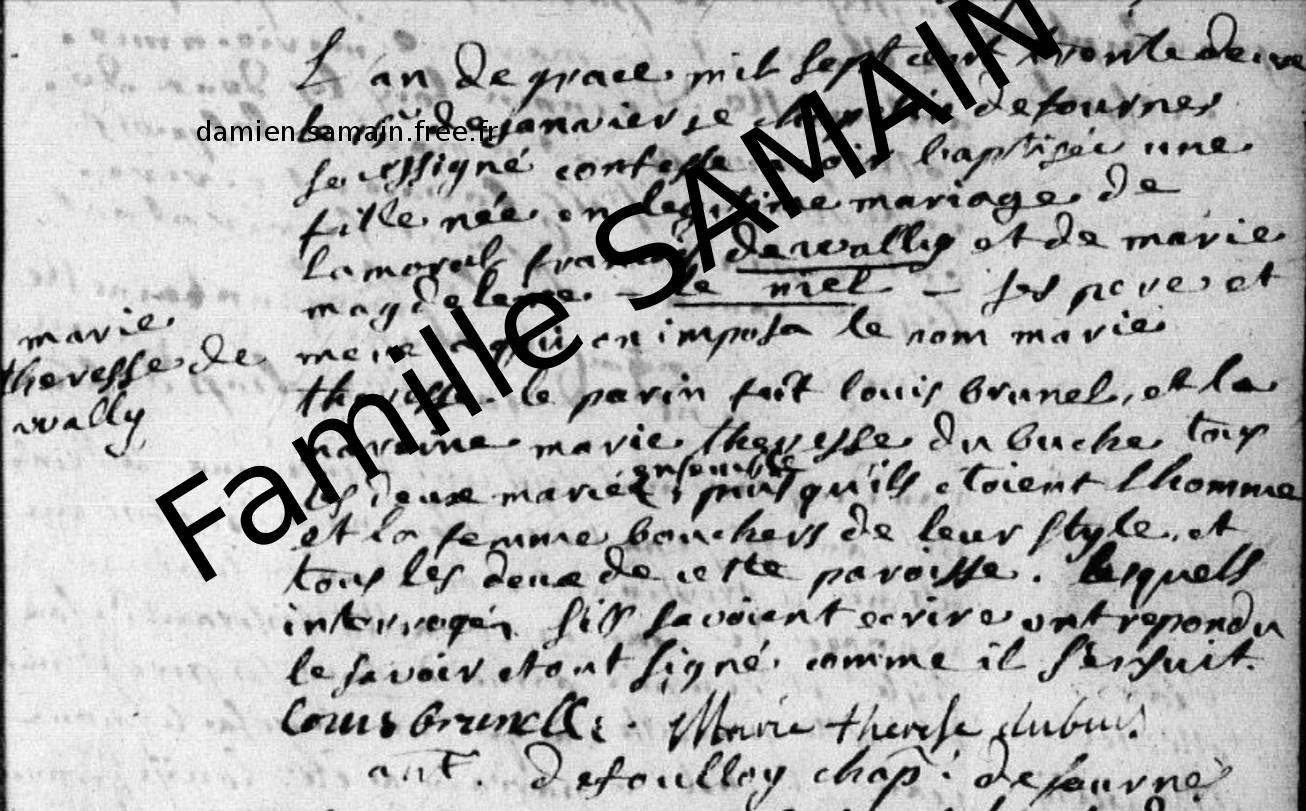 L'an de grace mil sept cent trente deux
damien.samain.free.fr
de janvier je defournes
soussigné confesse avoir baptisée une
fille née en legitime mariage de
lamoral francois dewally et de marie
magdeleine - le miel - ses pere et
mere a qui on imposa le nom marie
theresse le parin fut louis brunel, et la
maraine marie theresse du buche tous
ensemble
les deux mariéz, puisqu'ils etoient l'homme
et la femme bouchers de leur style, et
tous les deux de cette paroisse. lesquels
interrogéz s'ils savoient ecrire ont repondu
le savoir et ont signé comme il s'ensuit.
Louis brunelle. Marie therese dubuis.
ant. defoulloy chap. defourne
marie
theresse de
wally
Famille SAMAIN